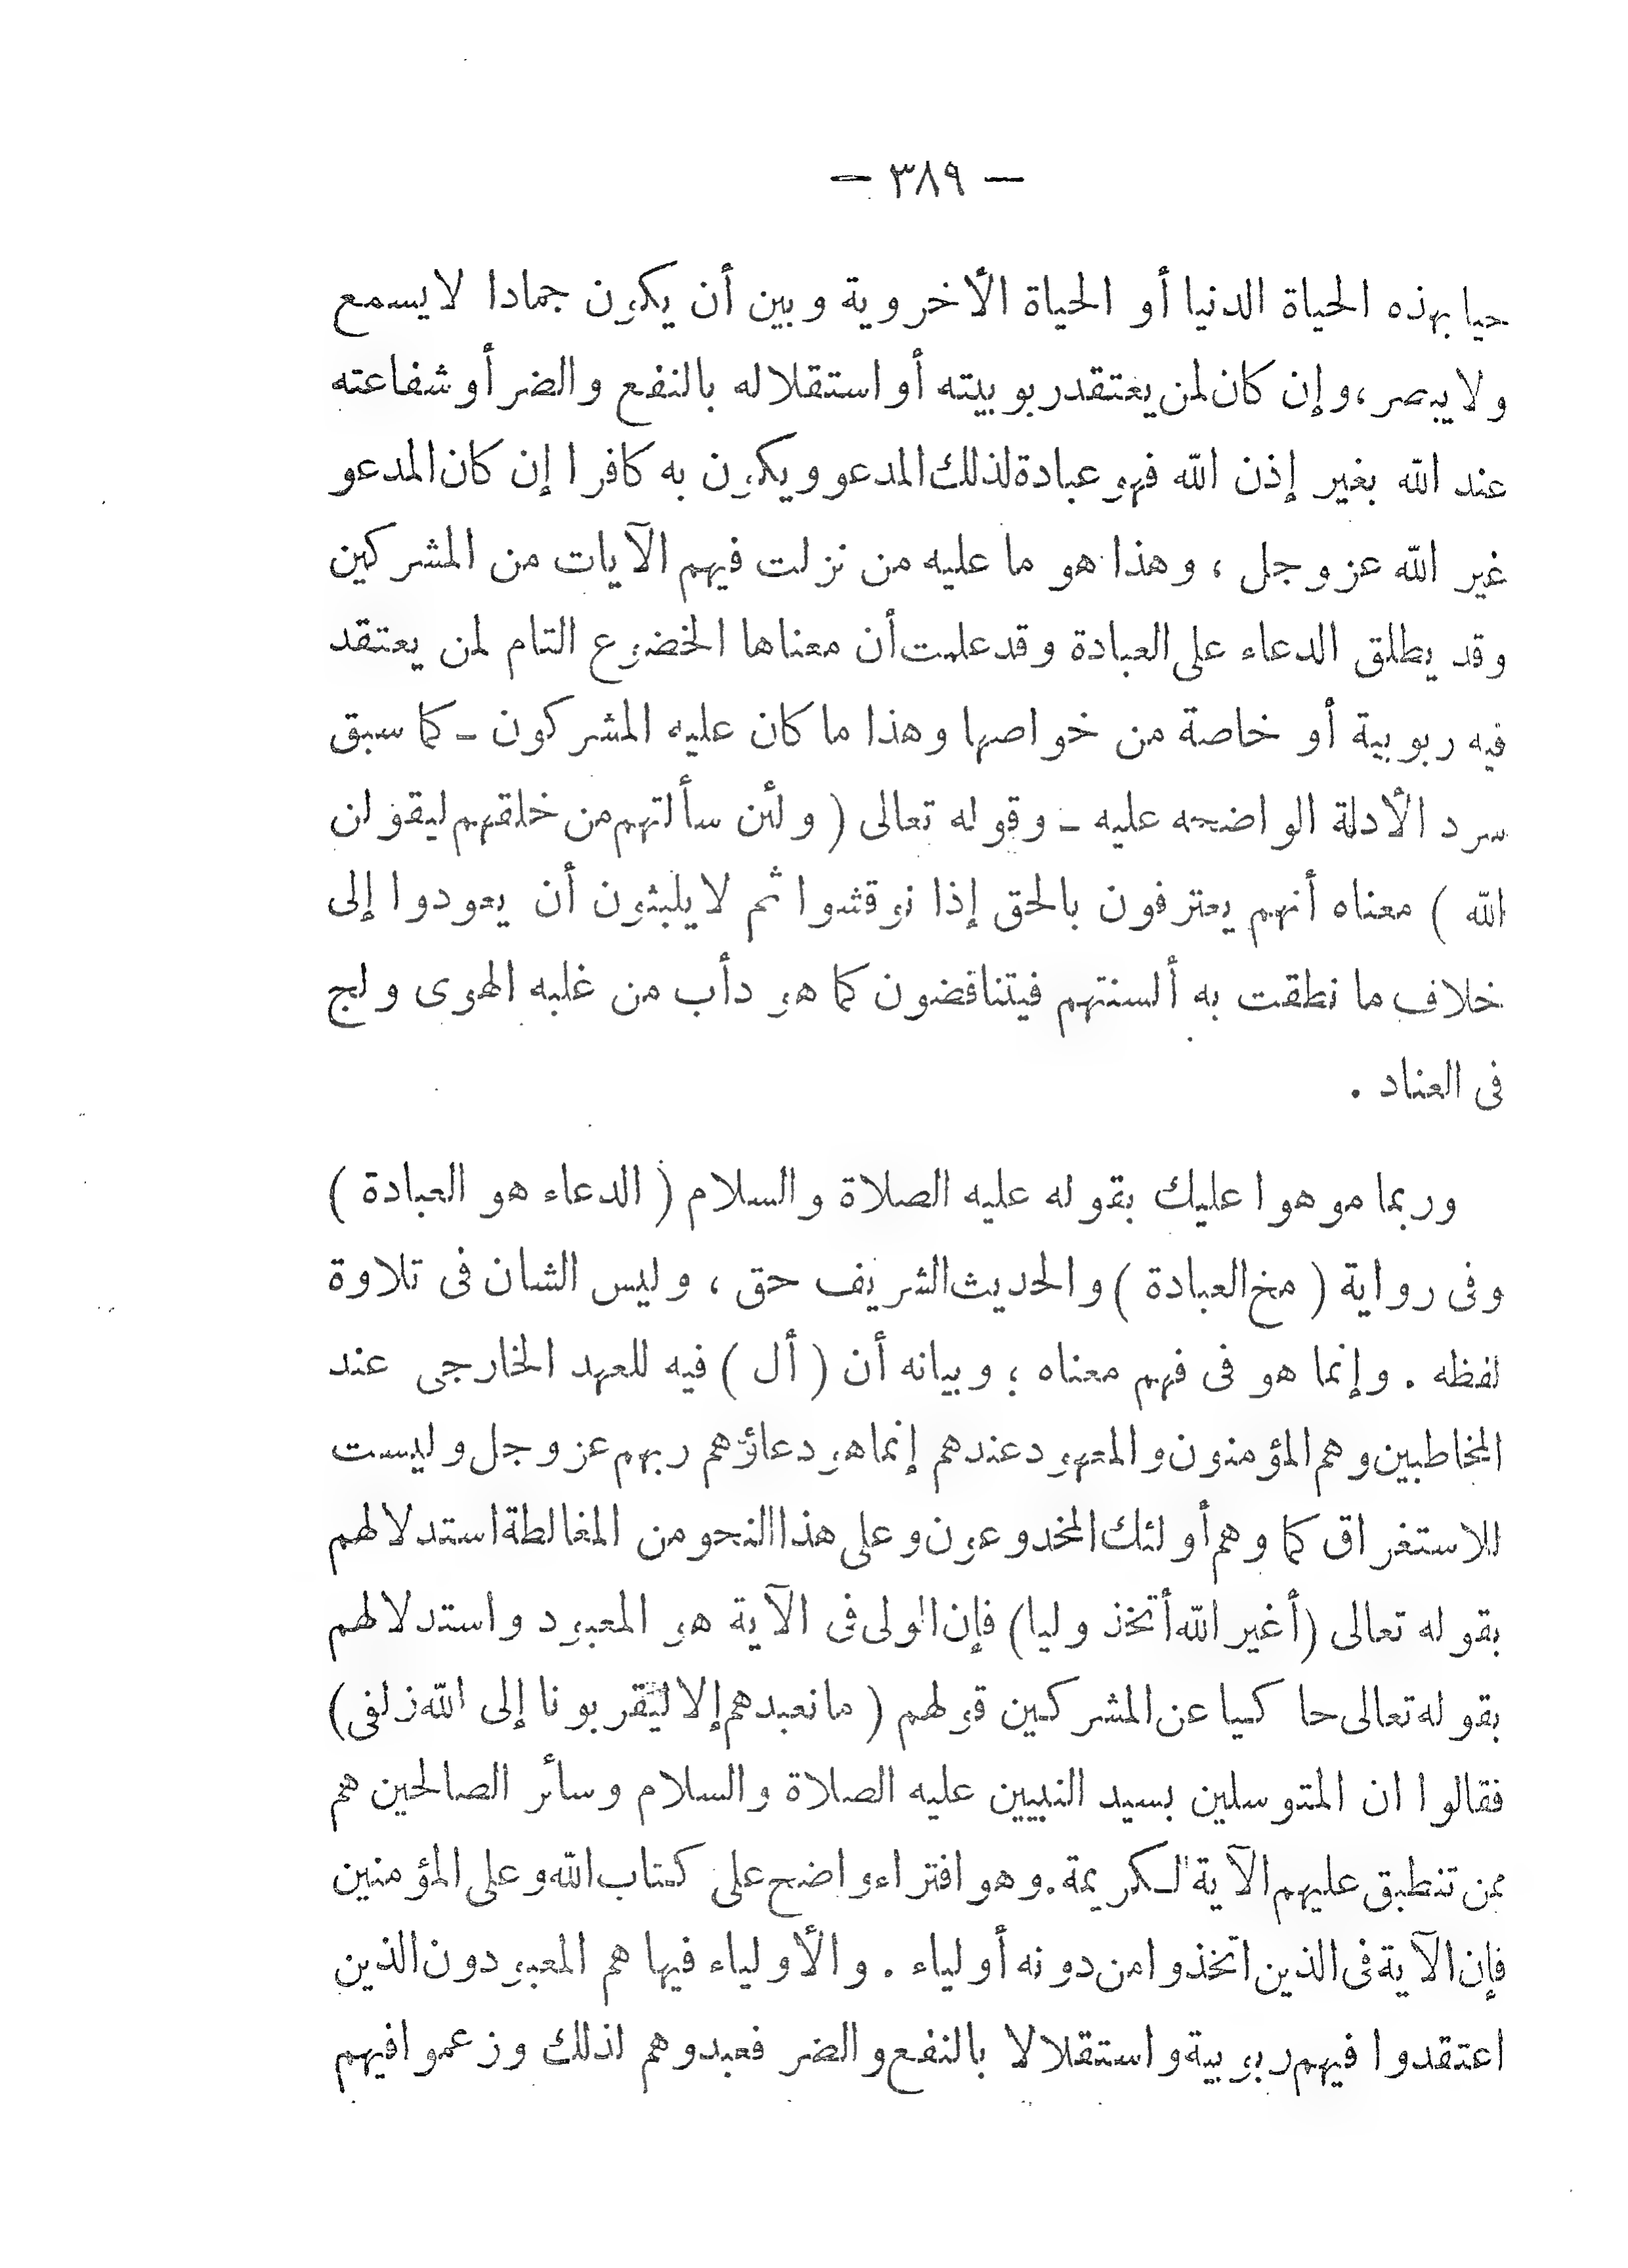 — ٣٨٩ —
حيا بهذه الحياة الدنيا أو الحياة الأخروية وبين أن يكون جمادا لا يسمع
ولا يبصر، وإن كان لمن يعتقد ربوبيته أو استقلاله بالنفع والضر أو شفاعته
عند الله بغير إذن الله فهو عبادة لذلك المدعو ويكون به كافرا إن كان المدعو
غير الله عز وجل ، وهذا هو ما عليه من نزلت فيهم الآيات من المشركين
وقد يطلق الدعاء على العبادة وقد علمت أن معناها الخضوع التام لمن يعتقد
فيه ربوبية أو خاصة من خواصها وهذا ما كان عليه المشركون ـ كما سبق
سرد الأدلة الواضحه عليه ـ وقوله تعالى ( ولئن سألتهم من خلقهم ليقولن
الله ) معناه أنهم يعترفون بالحق إذا نوقشوا ثم لا يلبثون أن يعودوا إلى
خلاف ما نطقت به ألسنتهم فيتناقضون كما هو دأب من غلبه الهوى ولج
فى العناد .
وربما موهوا عليك بقوله عليه الصلاة والسلام ( الدعاء هو العبادة )
وفى رواية ( مخ العبادة ) والحديث الشريف حق ، وليس الشان فى تلاوة
لفظه . وإنما هو فى فهم معناه ؛ وبيانه أن ( أل ) فيه للعهد الخارجى عند
المخاطبين وهم المؤمنون والمعهود عندهم إنما هو دعاؤهم ربهم عز وجل وليست
للاستغراق كما وهم أولئك المخدوعون وعلى هذا النحو من المغالطة استدلالهم
بقوله تعالى (أغير الله أتخذ وليا) فإن الولى فى الآية هو المعبود واستدلالهم
بقوله تعالى حاكيا عن المشركين قولهم ( ما نعبدهم إلا ليقربونا إلى الله زلفى)
فقالوا ان المتوسلين بسيد النبيين عليه الصلاة والسلام وسائر الصالحين هم
ممن تنطبق عليهم الآية الكريمة. وهو افتراء واضح على كتاب الله وعلى المؤمنين
فإن الآية فى الذين اتخذوا من دونه أولياء . والأولياء فيها هم المعبودون الذين
اعتقدوا فيهم ربوبية واستقلالا بالنفع والضر فعبدوهم لذلك وزعموا فيهم